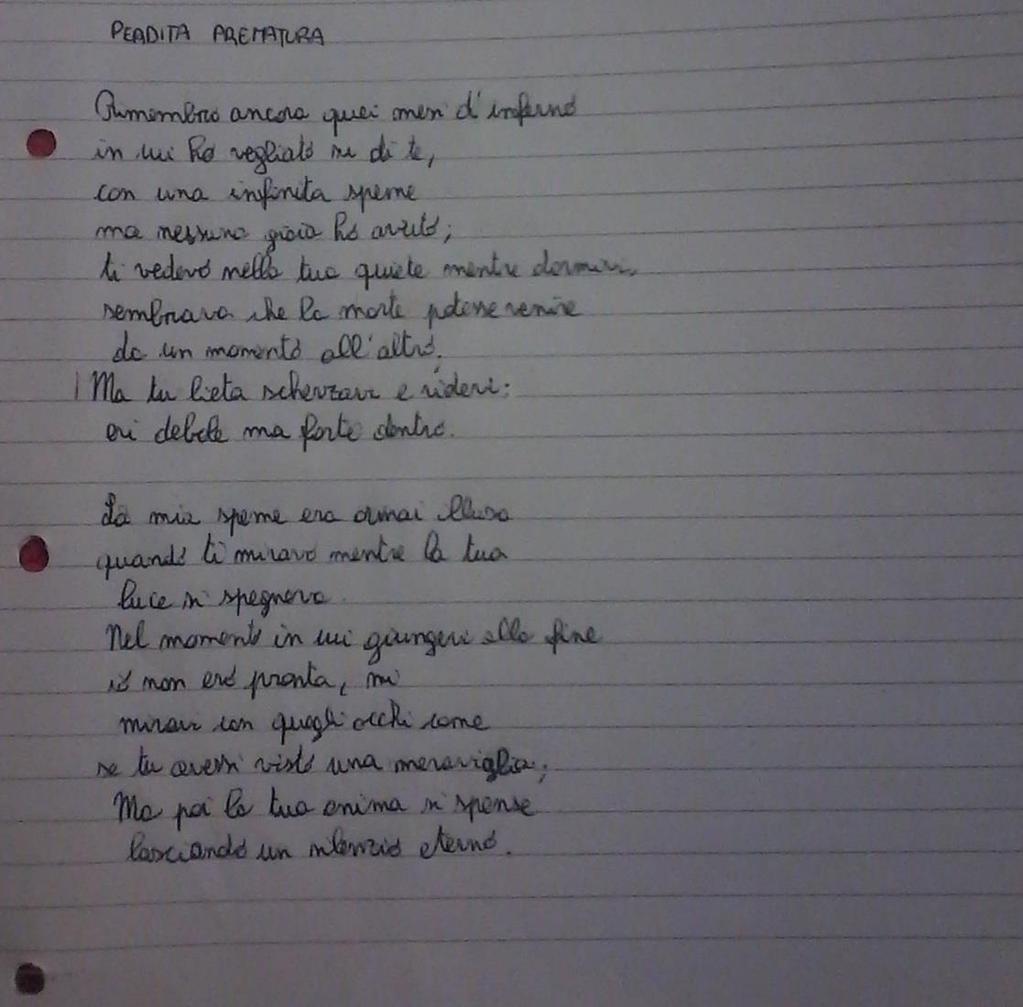 PERDITA PREMATURA
Rimembro ancora quei mesi d'inferno
in cui ho vegliato su di te,
con una infinita speme
ma nessuna gioia ho avuto;
ti vedevo nella tua quiete mentre dormivi,
sembrava che la morte potesse venire
da un momento all'altro.
Ma tu lieta scherzavi e ridevi:
eri debole ma forte dentro.
La mia speme era ormai illusa
quando ti miravo mentre la tua
luce si spegneva.
Nel momento in cui giungevi alla fine
io non ero pronta, mi
miravi con quegli occhi come
se tu avessi visto una meraviglia;
Ma poi la tua anima si spense
lasciando un silenzio eterno.